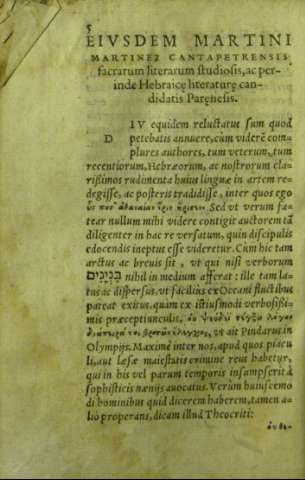 5
EIVSDEM MARTINI
MARTINEZ CANTAPETRENSIS
sacrarum literarum studiosis, ac per-
inde Hebraicę literaturę can-
didatis Paręnesis.
DIV equidem reluctatus sum quod
petebatis annuere, cum viderẽ com-
plures authores, tum veterum, tum
recentiorum, Hebræorum, ac nostrorum cla-
rißimos rudimenta huius linguæ in artem re-
degisse, ac posteris tradidisse, inter quos ego
Sed vt verum fa-
tear nullum mihi videre contigit auctorem tã
diligenter in hac re versatum, quin discipulis
edocendis ineptus esse videretur. Cum hic tam
arctus ac breuis sit, vt qui nisi verborum
בנינים nihil in medium afferat: ille tam la-
tus ac dispersus, vt facilius ex Oceani fluctibus
pateat exitus, quam ex istiusmodi verbosißi-
mis præceptiunculis,
vt ait Pindarus in
Olympijs. Maximè inter nos, apud quos piacu
li, aut læsæ maiestatis crimine reus habetur,
qui in his vel parum temporis insumpserit à
sophisticis nænijs auocatus. Verùm huiuscemo
di hominibus quid dicerem haberem, tamen a-
liò properans, dicam illud Theocriti: